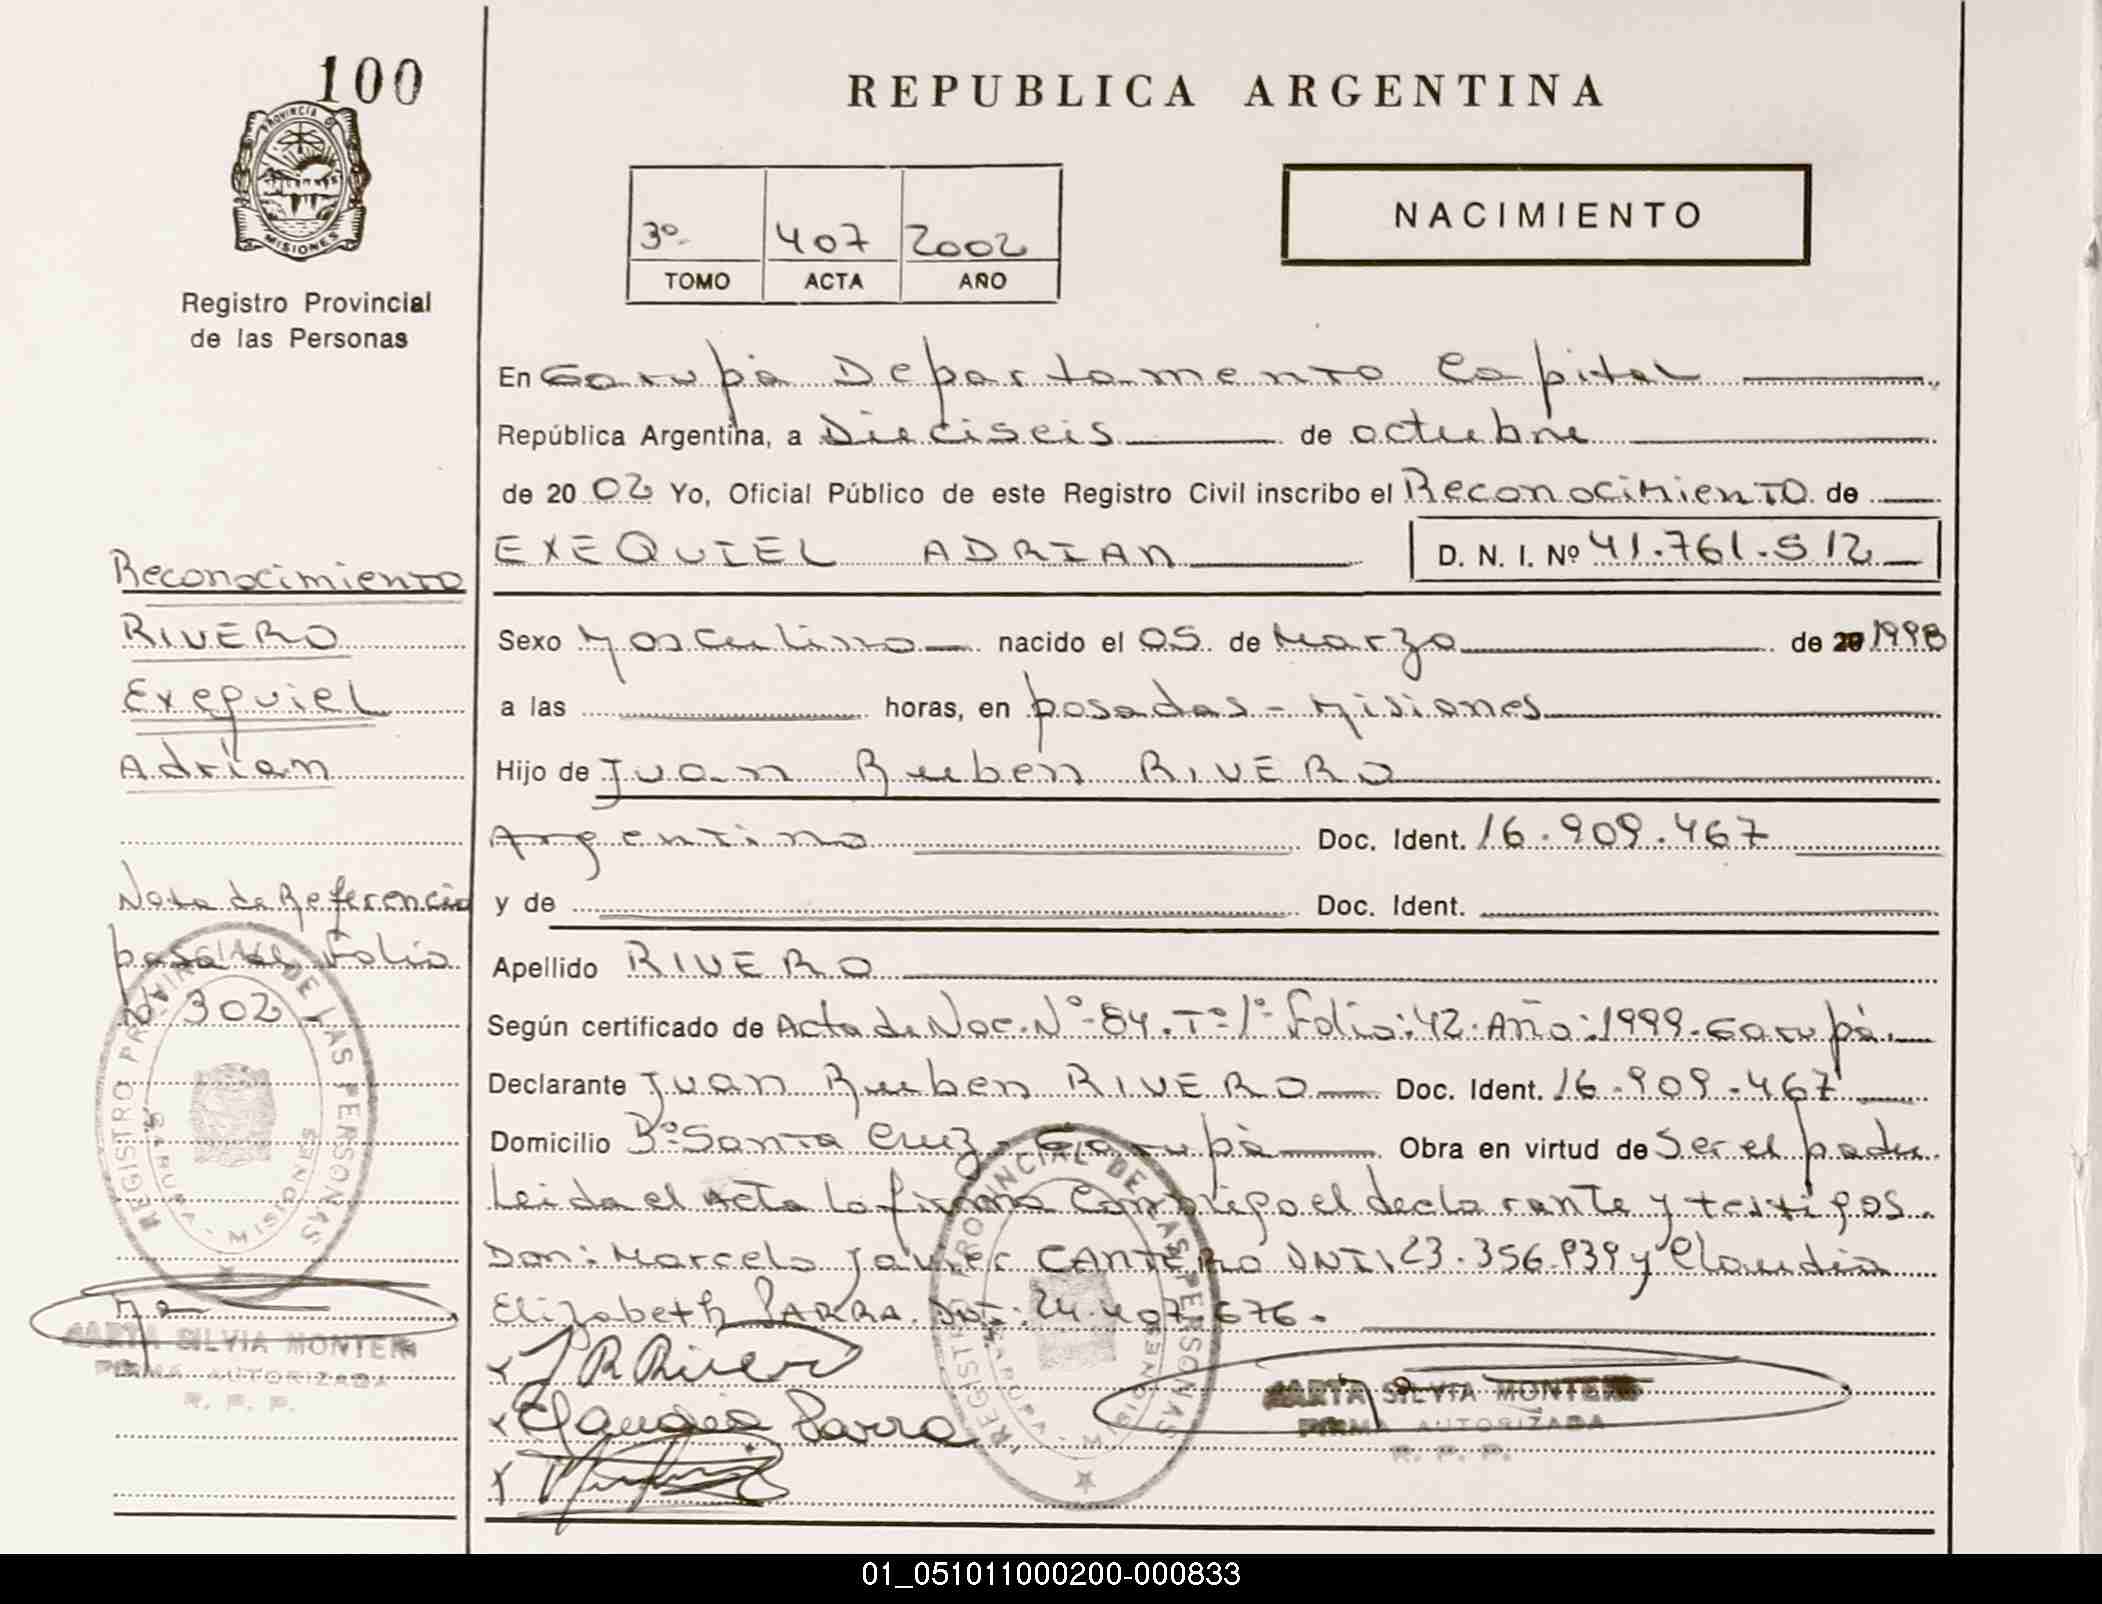 100
PROVINCIA DE
MISIONES
Registro Provincial
de las Personas
REPUBLICA ARGENTINA
3º 407 2002
TOMO ACTA AÑO
NACIMIENTO
En Garupá Departamento Capital
República Argentina, a Dieciseis de octubre
de 20 02 Yo, Oficial Público de este Registro Civil inscribo el Reconocimiento de
EXEQUIEL ADRIAN D. N. I. Nº 41.761.512
Sexo Masculino nacido el 05 de Marzo de 20 1998
a las horas, en posadas - Misiones
Hijo de Juan Ruben RIVERO
Argentino Doc. Ident. 16.909.467
y de Doc. Ident.
Apellido RIVERO
Según certificado de Acta de Nac. Nº 84. Tº 1º Folio: 42. Año: 1999. Garupá.
Declarante Juan Ruben RIVERO Doc. Ident. 16.909.467
Domicilio Bº Santa Cruz - Garupá Obra en virtud de Ser el padre.
Leida el Acta lo firma Conmigo el declarante y testigos.
Don: Marcelo Javier CANTERO DNI: 23.356.939 y Claudia
Elizabeth PARRA. DNI: 24.407.676.
J R Rivero
Claudia Parra
REGISTRO PROVINCIAL DE LAS PERSONAS
GARUPA - MISIONES
SILVIA MONTERO
FIRMA AUTORIZADA
R. P. P.
Reconocimiento
RIVERO
Exequiel
Adrian
Nota de Referencia
pasa al Folio
Nº 302
REGISTRO PROVINCIAL DE LAS PERSONAS
GARUPA - MISIONES
SILVIA MONTERO
FIRMA AUTORIZADA
R. P. P.
01_051011000200-000833